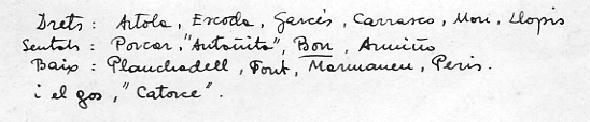 Drets: Artola, Escoda, Garcés, Carrasco, Mori, Llopis
Sentats: Porcar, "Antoñito", Bon, Armiño
Baix: Planchadell, Font, Marmaneu, Peris.
i el gos, "Catorce".